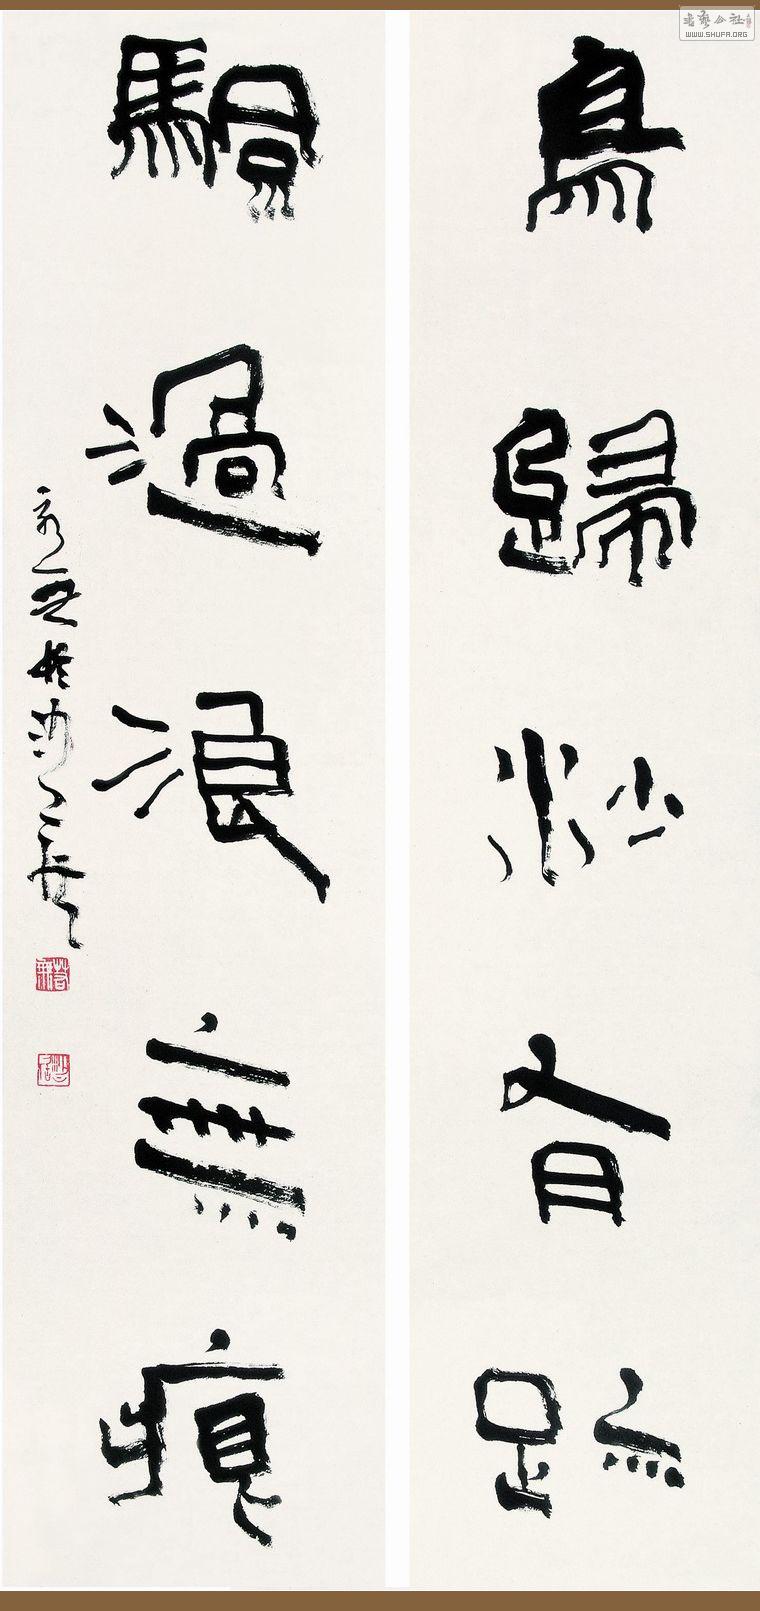 鳥歸沙有跡
颿過浪無痕
書藝公社
WWW.SHUFA.ORG